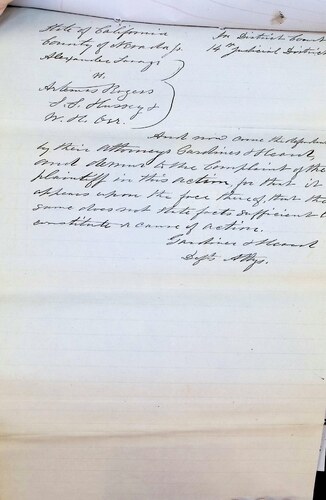 State of California
County of Nevada ss
In District Court
14th Judicial District
Alexander
vs.
Artemas Rogers
S. S. Hussey &
W. H. Orr.
And now come the defendants
by their Attorneys Gardiner & Hearst,
and demur to the Complaint of the
plaintiff in this action for that it
appears upon the face thereof, that the
same does not state facts sufficient to
constitute a cause of action.
Gardiner & Hearst
Defts Attys.